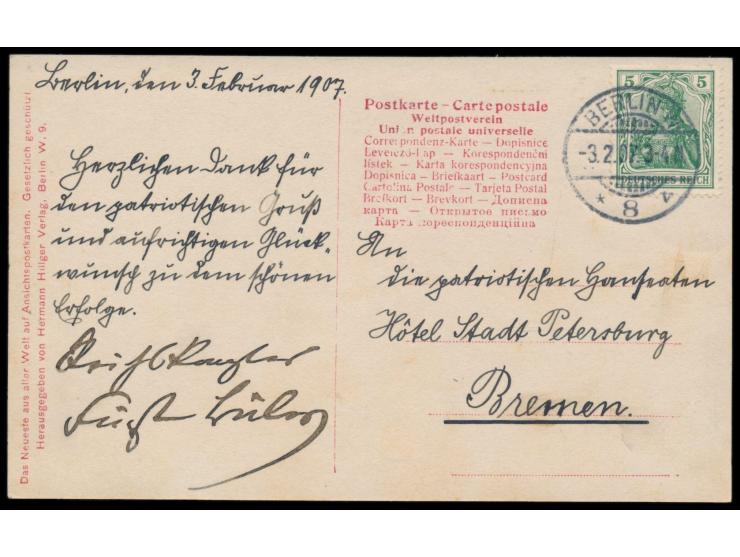 Berlin, den 3. Februar 1907.
Herzlichen Dank für
den patriotischen Gruß
und aufrichtigen Glück-
wunsch zu dem schönen
Erfolge.
Reichskanzler
Fürst Bülow
Das Neueste aus aller Welt auf Ansichtspostkarten. Gesetzlich geschützt.
Herausgegeben von Hermann Hillger Verlag, Berlin W. 9.
Postkarte – Carte postale
Weltpostverein
Union postale universelle
Correspondenz-Karte – Dopisnice
Levelező-Lap – Korespondenční
listek – Karta korespondencyjna
Dopisnica – Briefkaart – Postcard
Cartolina Postale – Tarjeta Postal
Brefkort – Brevkort – Дописна
карта – Открытое письмо
Карта кореспонденційна
5 5
DEUTSCHES REICH
BERLIN W
-3.2.07. 3-4
* 8 v
An
die patriotischen Hanseaten
Hôtel Stadt Petersburg
Bremen.